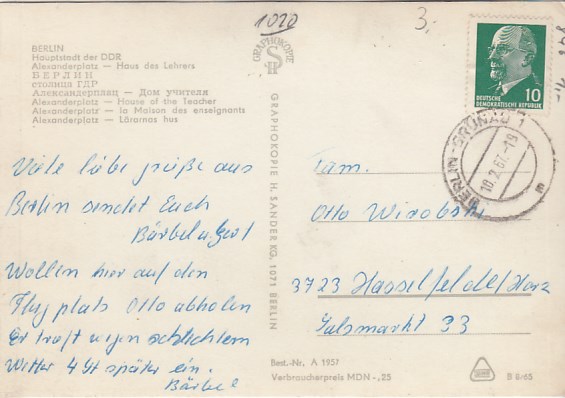 1020
3.
BERLIN
Hauptstadt der DDR
Alexanderplatz — Haus des Lehrers
БЕРЛИН
столица ГДР
Александерплац — Дом учителя
Alexanderplatz — House of the Teacher
Alexanderplatz — la Maison des enseignants
Alexanderplatz — Lärarnas hus
GRAPHOKOPIE
GRAPHOKOPIE H. SANDER KG, 1071 BERLIN
10
DEUTSCHE
DEMOKRATISCHE REPUBLIK
BERLIN-GRÜNAU 1
10.2.67.-19
Viele liebe Grüße aus
Berlin sendet Euch
Bärbel u. Gert
Wollen hier auf den
Flugplats Otto abholen
Er trift wegen schlichtem
Wetter 4 St später ein.
Bärbel
Fam.
Otto
3723 Hasselfelde/Harz
Salsmarkt 33
Best.-Nr. A 1957
Verbraucherpreis MDN -,25
B 8/65